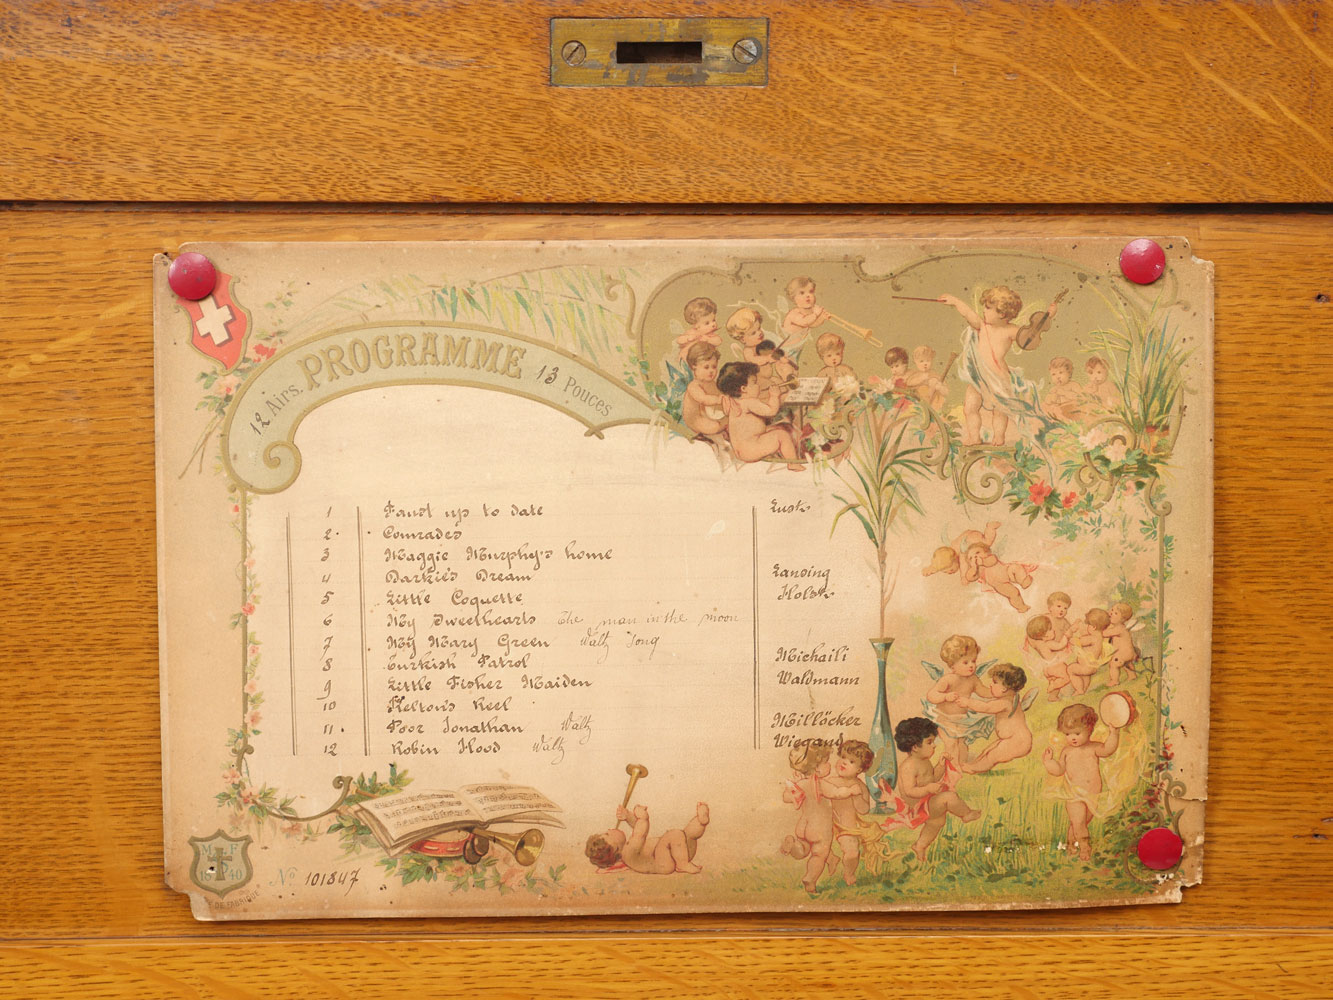 12 Airs. PROGRAMME 13 Pouces
1 Faust up to date Lust
2. Comrades
3 Maggie Murphy's home
4 Darkie's Dream Lansing
5 Little Coquette Holst
6 My Sweethearts the man in the moon
7 My Mary Green Waltz Song
8 Turkish Patrol Michaili
9 Little Fisher Maiden Waldmann
10 Melton's Reel
11. Poor Jonathan Waltz Millöcker
12 Robin Hood Waltz Wiegand
M F
18 40
DE FABRIQUE
No 101847